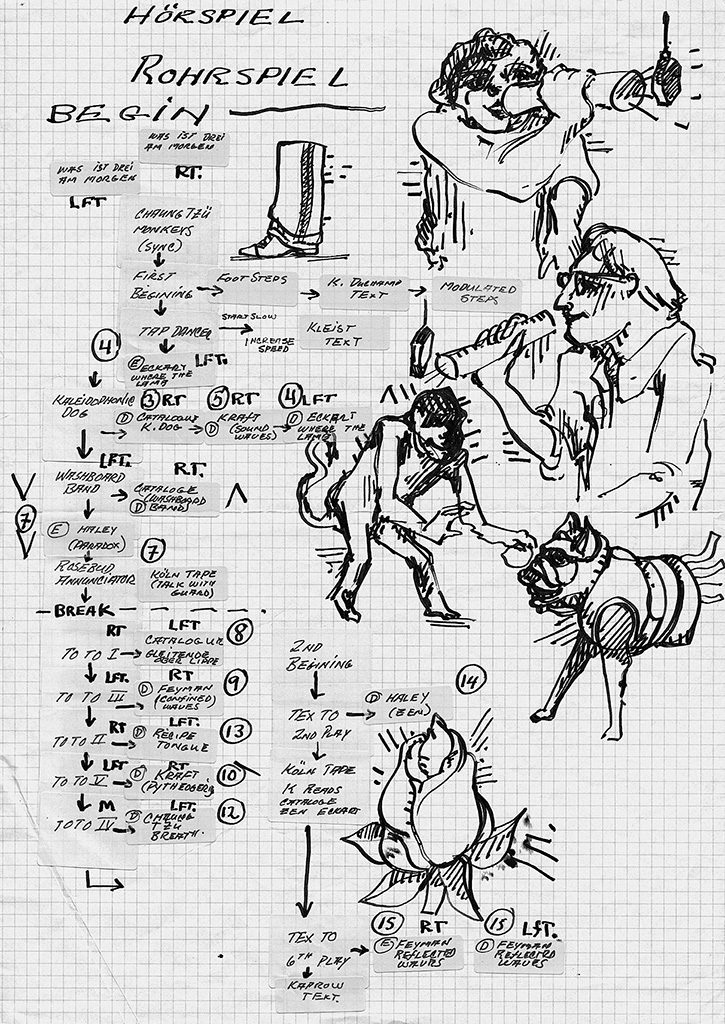 HÖRSPIEL
ROHRSPIEL
BEGIN
WAS IST DREI
AM MORGEN
RT.
WAS IST DREI
AM MORGEN
LFT
CHAUNG TZÜ
MONKEYS
(SYNC)
FIRST
BEGINING
FOOT STEPS
K. DUCHAMP
TEXT
MODULATED
STEPS
TAP DANCE
START SLOW
INCREASE
SPEED
KLEIST
TEXT
4
E ECKART LFT.
WHERE THE
LAMB
KALEIDOPHONIC
DOG
3 RT
D CATALOGUE
K. DOG
5 RT
D KRAFT
(SOUND
WAVES)
4 LFT
D ECKART
WHERE THE
LAMB
LFT.
WASHBOARD
BAND
RT.
CATALOGE
(WASHBOARD
D BAND)
7
E HALEY
(PARADOX)
7
ROSEBUD
ANNUNCIATOR
KÖLN TAPE
(TALK WITH
GUARD)
BREAK
RT
TO TO I
LFT
CATALOGUE
GLEITENDE
ÜBER LIPPE
8
LFT.
TO TO III
RT
D FEYMAN
(CONFINED
WAVES)
9
RT
TOTO II
LFT.
D RECIPE
TONGUE
13
LFT
TO TO V
RT
D KRAFT
(PYTHEGOERS
10
M
TOTO IV
LFT.
D CHAUNG
TZU
BREATH.
12
2ND
BEGINING
TEX TO
2ND PLAY
D HALEY
(ZEN)
14
KÖLN TAPE
K READS
CATALOGE
ZEN ECKART
TEX TO
6TH PLAY
15 RT
E FEYMAN
REFLECTED
WAVES
15 LFT.
D FEYMAN
REFLECTED
WAVES
KAPROW
TEXT.